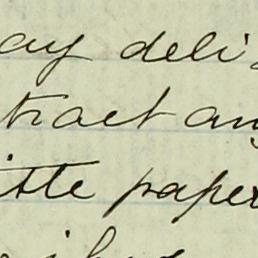 ay deli
tract any
itte paper